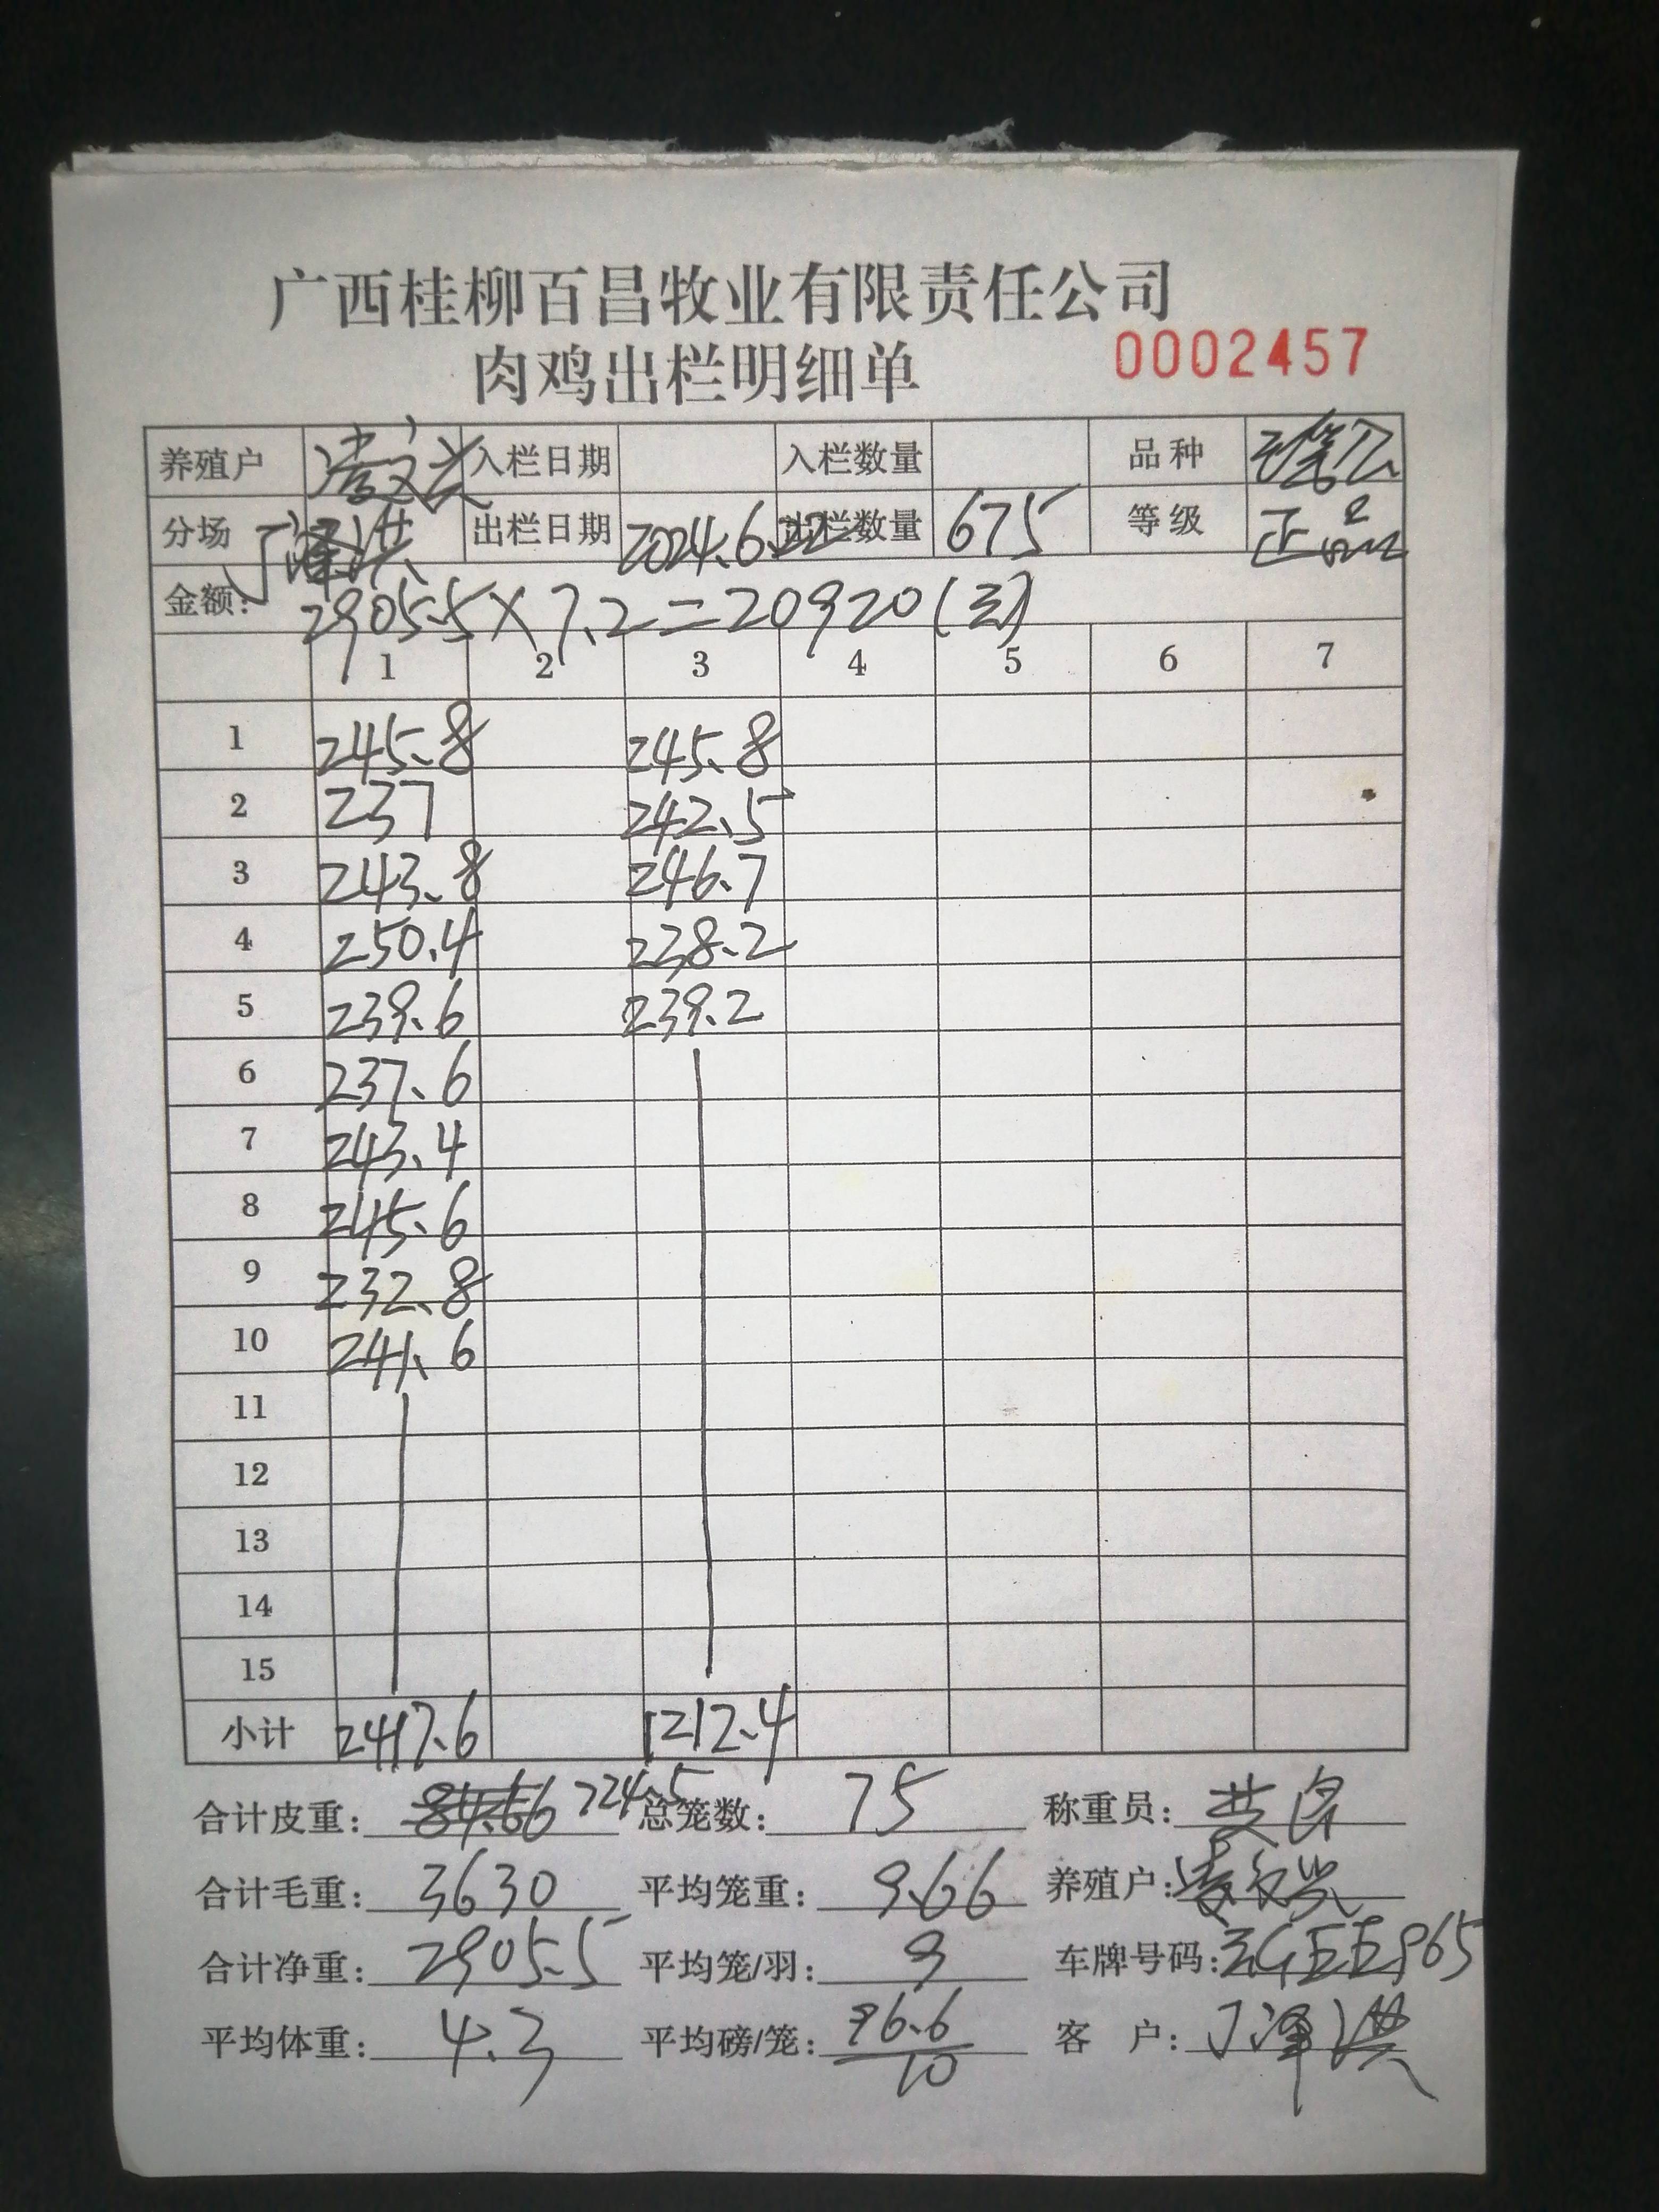 广西桂柳百昌牧业有限责任公司
肉鸡出栏明细单
0002457
养殖户 凌文兴 入栏日期 入栏数量 品种
分场 丁泽洪 出栏日期 2024.6.22 出栏数量 675 等级 正品
金额: 2905.5×7.2=20920(元)
1 2 3 4 5 6 7
1 245.8 245.8
2 237 242.5
3 243.8 246.7
4 250.4 238.2
5 239.6 239.2
6 237.6
7 243.4
8 245.6
9 232.8
10 241.6
11
12
13
14
15
小计 2417.6 1212.4
合计皮重: 724.5 总笼数: 75 称重员:
合计毛重: 3630 平均笼重: 9.66 养殖户: 凌文兴
合计净重: 2905.5 平均笼/羽: 9 车牌号码:
平均体重: 4.3 平均磅/笼: 96.6/10 客户: 丁泽洪